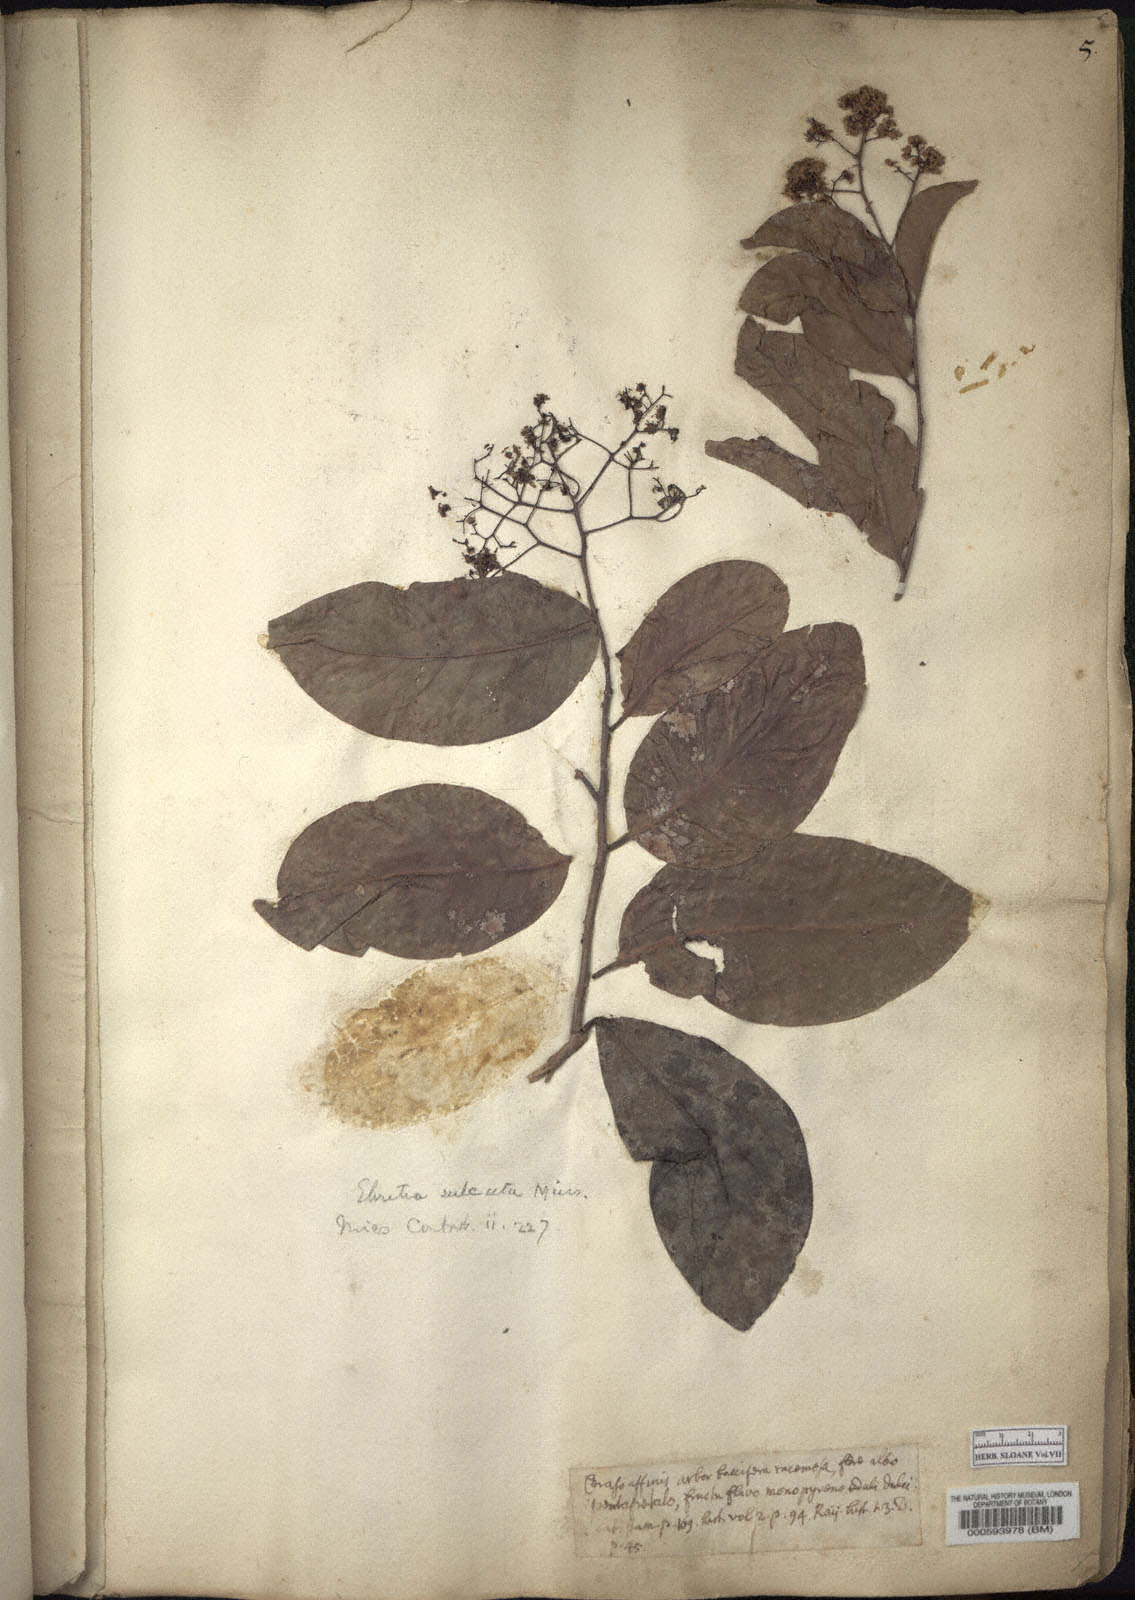 5.
Ehretia sulcata Miers.
Miers Contrib. ii. 227
Ceraso affinis arbor baccifera racemosa, flore albo
pentapetalo, fructu flavo monopyreno eduli dulci.
Cat. Jam. p. 169. hist. vol 2. p. 94. Raij. hist. t. 3. D.
p. 45.
HERB. SLOANE Vol.VII
THE NATURAL HISTORY MUSEUM, LONDON
DEPARTMENT OF BOTANY
000593978 (BM)